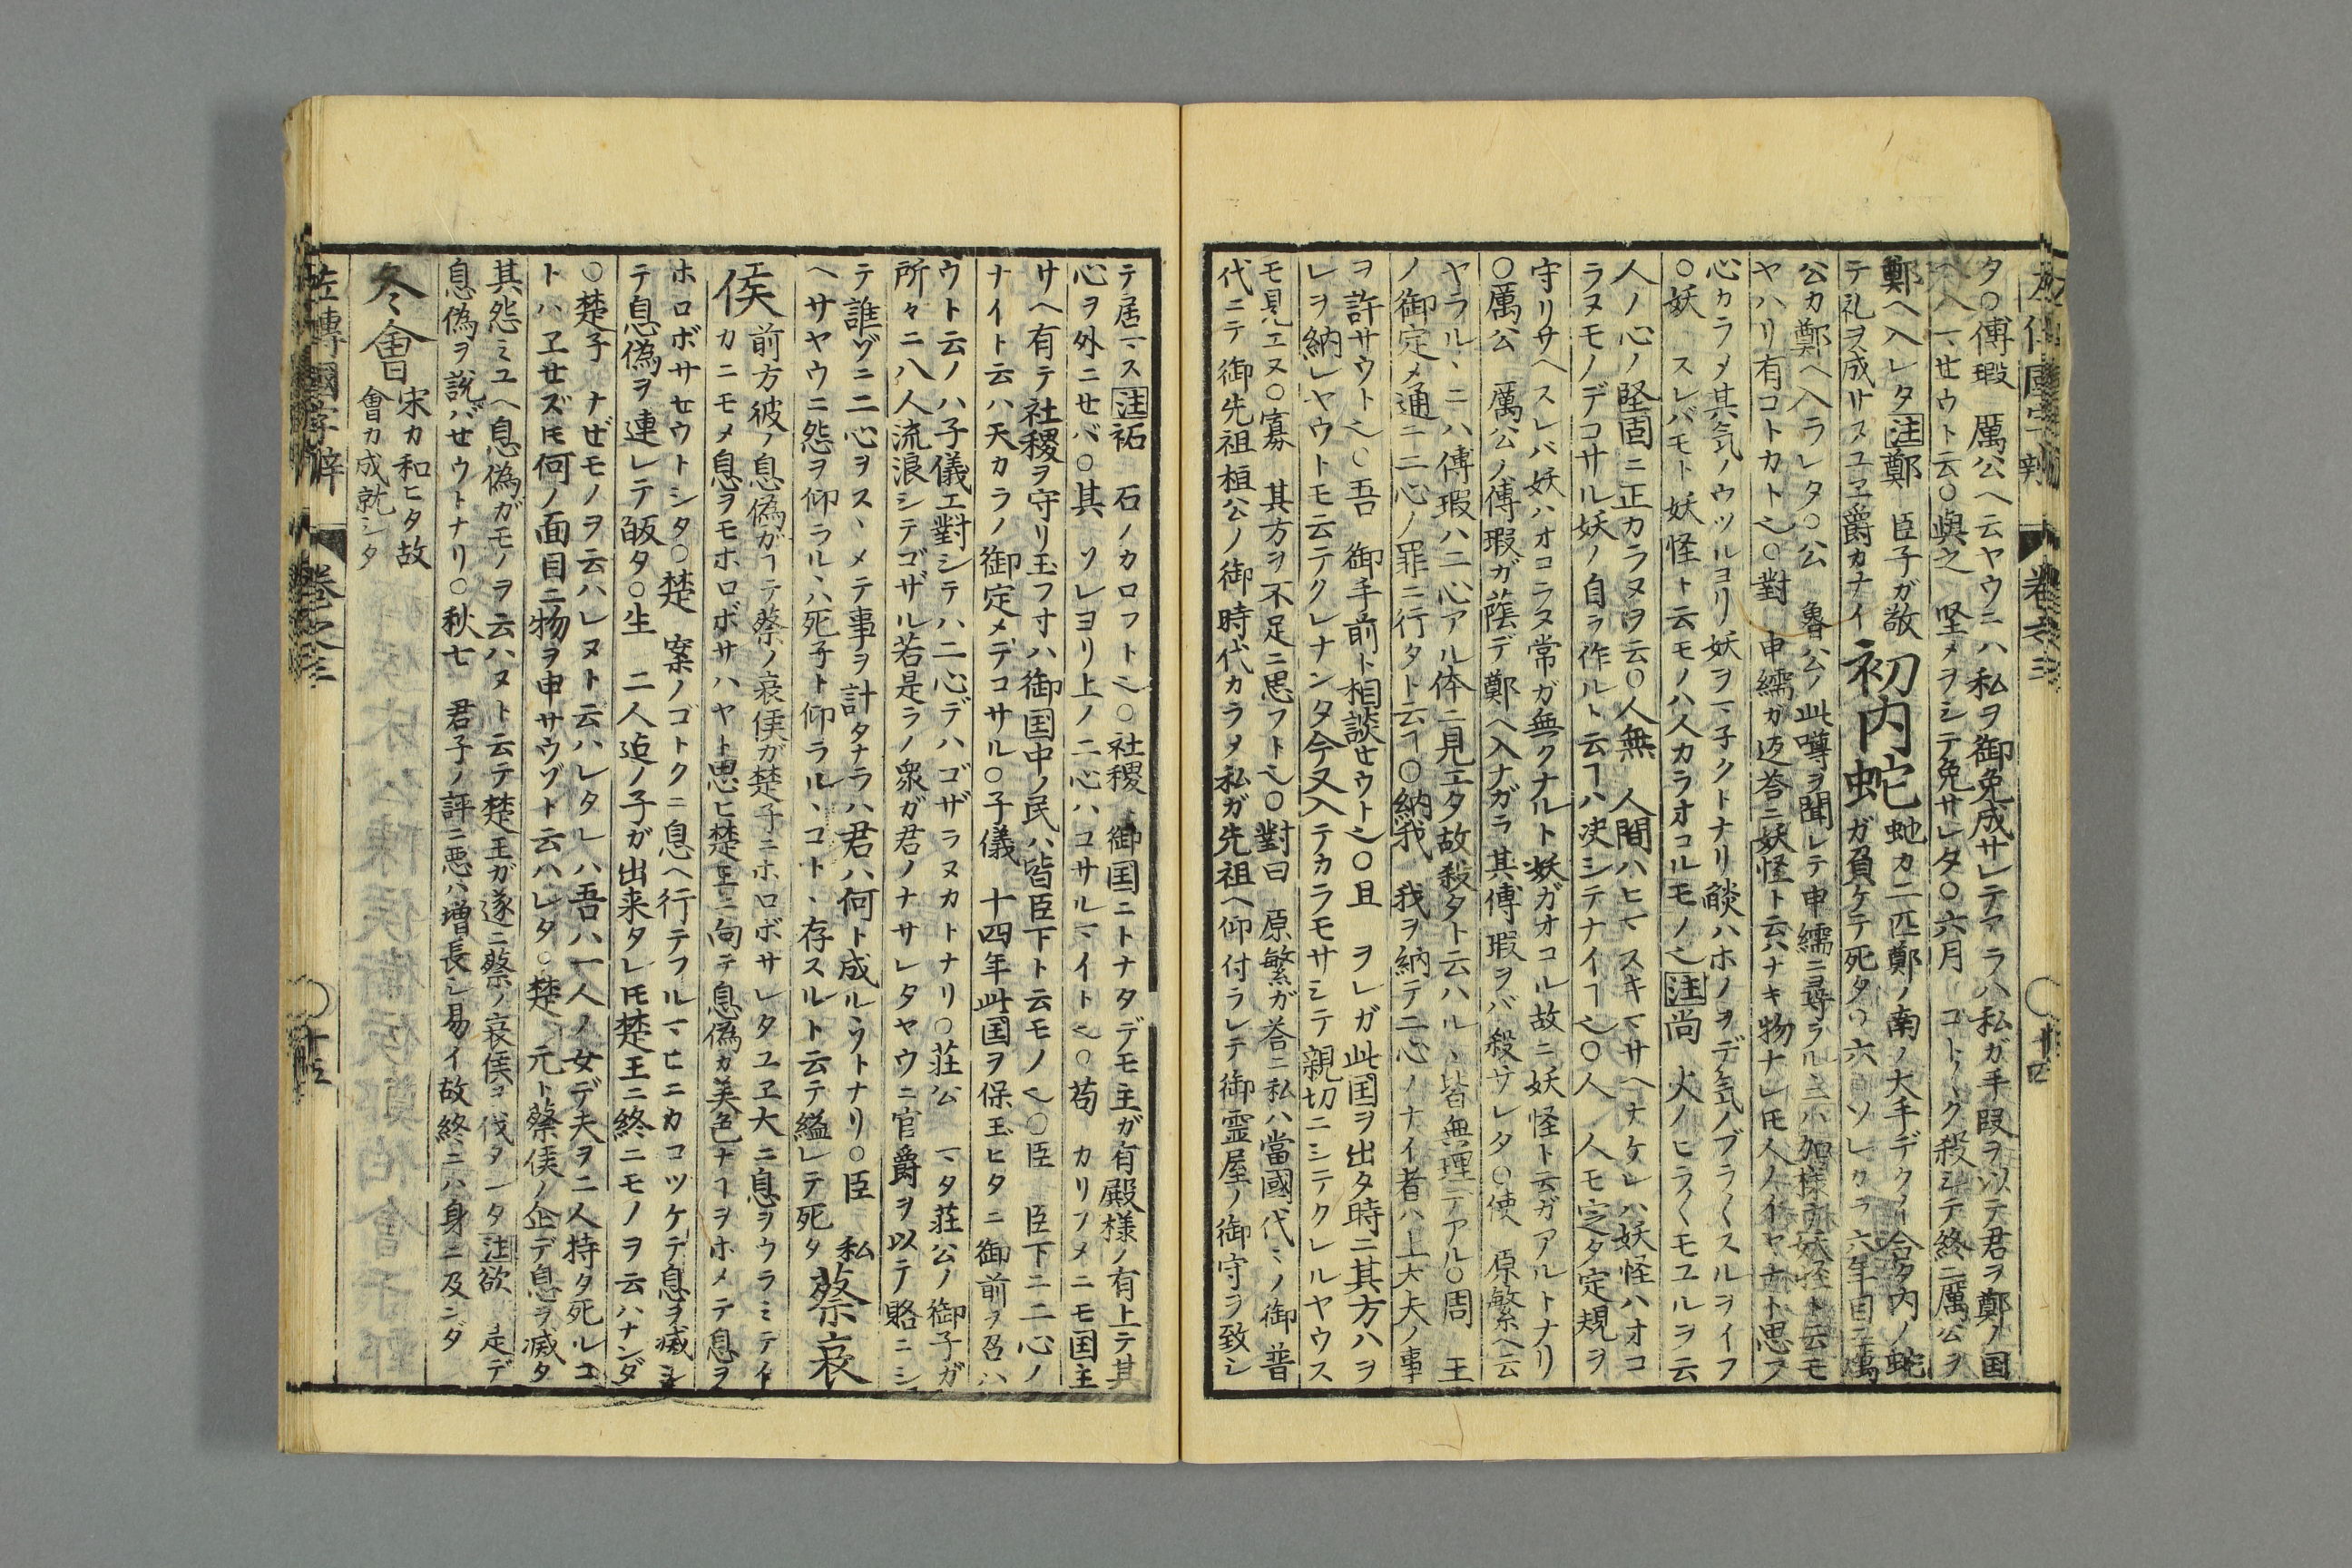 タ○傅瑕 厲公ヘ云ヤウニハ私ヲ御免成サレテアラハ私ガ手段ヲ以テ君ヲ鄭ノ国
ヘ入マセウト云○與之 堅メヲシテ免サレタ○六月 コト〱ク殺シテ終ニ厲公ヲ
鄭ヘ入レタ注鄭 臣子ガ敢
テ礼ヲ成サヌユヱ爵カナイ
初内蛇
蛇カ二匹鄭ノ南ノ大手デクイ合タ内ノ蛇
ガ負ケテ死タ○六 ソレカラ六年目ニ厲
公カ鄭ヘ入ラレタ○公 魯公ノ此噂ヲ聞レテ申繻ニ尋ラルヽニハ加様ナ妖怪ト云モ
ヤハリ有コトカト也○對 申繻ガ返答ニ妖怪ト云ハナキ物ナレ𪜈人ノイヤナト思フ
心カラメ其気ノウツルヨリ妖ヲマ子クトナリ燄ハホノヲデ気ノブラ〱スルヲイフ
○妖 スレバモト妖怪ト云モノハ人カラオコルモノ也注尚 火ノヒラ〱モユルヲ云
人ノ心ノ堅固ニ正カラヌヲ云○人無 人間ハヒマスキマサヘナケレハ妖怪ハオコ
ラヌモノデコサル妖ノ自ラ作ルト云ヿハ决シテナイヿ也○人 人モ定タ定規ヲ
守リサヘスレバ妖ハオコラヌ常ガ無クナルト妖ガオコル故ニ妖怪ト云ガアルトナリ
○厲公 厲公ノ傅瑕ガ蔭デ鄭ヘ入ナガラ其傅瑕ヲバ殺サレタ○使 原繁ヘ云
ヤラルヽニハ傅瑕ハ二心アル体ニ見エタ故殺タト云ハルヽ皆無理デアル○周 王
ノ御定メ通ニ二心ノ罪ニ行タト云ヿ○納我 我ヲ納テ二心ノナイ者ハ上大夫ノ事
ヲ許サウト也○吾 御手前ト相談セウト也○且 ヲレガ此国ヲ出タ時ニ其方ハヲ
レヲ納レヤウトモ云テクレナンタ今又入テカラモサシテ親切ニシテクレルヤウス
モ見エヌ○寡 其方ヲ不足ニ思フト也○對曰 原繁ガ荅ニ私ハ當國代ミノ御普
代ニテ御先祖桓公ノ御時代カラメ私ガ先祖ヘ仰付ラレテ御霊屋ノ御守ラ致シ
テ居マス注祏 石ノカロフト也○社稷 御国ニトナタデモ主ガ有殿様ノ有上テ其
心ヲ外ニセバ○其 ソレヨリ上ノ二心ハコサルマイト也○苟 カリソメニモ国主
サヘ有テ社稷ヲ守リ玉フ寸ハ御国中ノ民ハ皆臣下ト云モノ也○臣 臣下ニ二心ノ
ナイト云ハ天カラノ御定メデコサル○子儀 十四年此国ヲ保玉ヒタニ御前ヲ召ハ
ウト云ノハ子儀エ對シテハ二心デハゴザラヌカトナリ○荘公 マタ荘公ノ御子ガ
所々ニ八人流浪シテゴザル若是ラノ衆ガ君ノナサレタヤウニ官爵ヲ以テ賂ニシ
テ誰ゾニ二心ヲスヽメテ事ヲ計タナラハ君ハ何ト成ルヽウトナリ○臣 私
ヘサヤウニ怨ヲ仰ラルヽハ死子ト仰ラルヽコトヽ存スルト云テ縊レテ死タ
蔡哀
侯
前方彼ノ息偽ガヿテ蔡ノ哀侯ガ楚子ニホロボサレタユヱ大ニ息ヲウラミテイ
カニモメ息ヲモホロボサハヤト思ヒ楚王ニ向テ息偽カ美色ナヿヲホメテ息ヲ
ホロボサセウトシタ○楚 案ノゴトクニ息ヘ行テフルマヒニカコツケテ息ヲ滅シ
テ息偽ヲ連レテ皈タ○生 二人迠ノ子ガ出来タレ𪜈楚王ニ終ニモノヲ云ハナンダ
○楚子 ナゼモノヲ云ハレヌト云ハレタレハ吾ハ一人ノ女デ夫ヲ二人持タ死ルコ
トハヱセズ𪜈何ノ面目ニ物ヲ申サウゾト云ハレタ○楚 元ト蔡侯ノ企デ息ヲ滅タ
其怨ミユヘ息偽ガモノヲ云ハヌト云テ楚王ガ遂ニ蔡ノ哀侯ヲ伐タンタ注欲 是デ
息偽ヲ説バセウトナリ○秋七 君子ノ評ニ悪ハ増長シ易イ故終ニハ身ニ及ンダ
冬會
宋カ和ヒタ故
會カ成就シタ
左傳國字辨 卷之三 十五